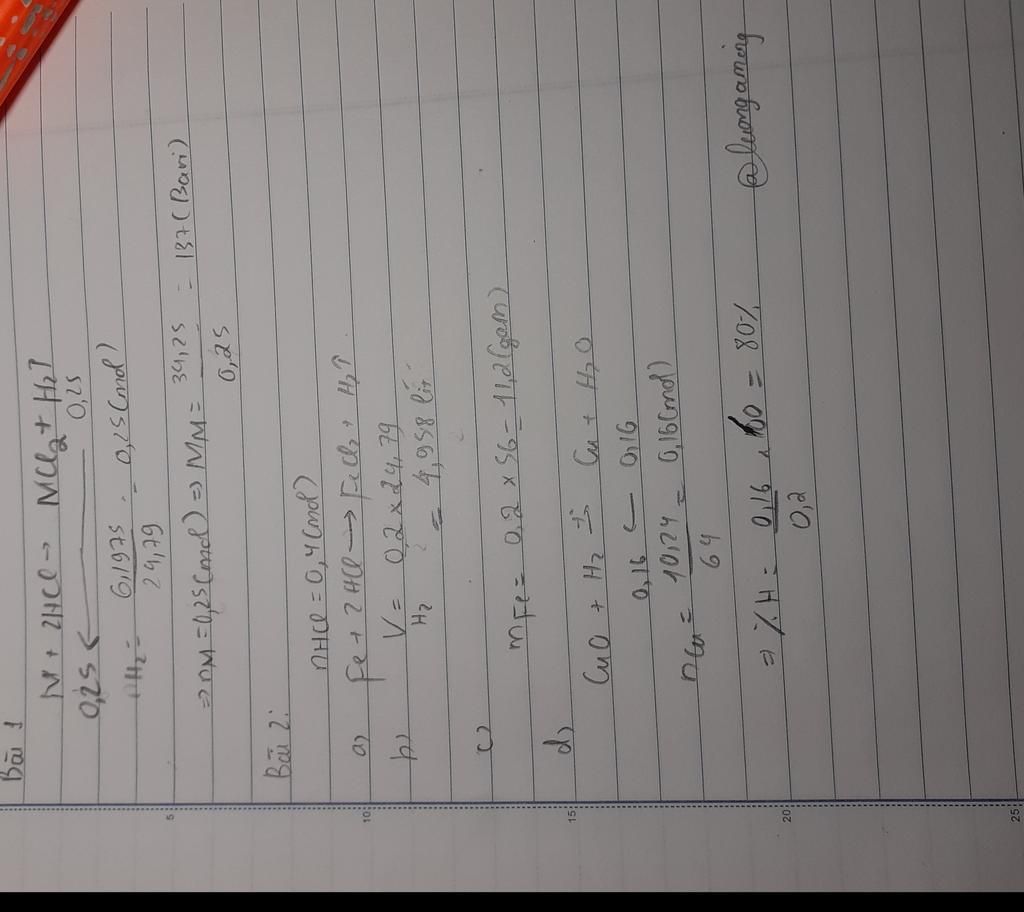 Bài 1
M + 2HCl → MCl2 + H2↑
0,25 ← 0,25
nH2 = 6,1975 / 24,79 = 0,25 (mol)
⇒ nM = 0,25 (mol) ⇒ MM = 34,25 / 0,25 = 137 (Bari)
Bài 2:
nHCl = 0,4 (mol)
a) Fe + 2HCl → FeCl2 + H2↑
b) VH2 = 0,2 x 24,79
= 4,958 lít
c) mFe = 0,2 x 56 = 11,2 (gam)
d)
CuO + H2 → Cu + H2O
0,16 ← 0,16
nCu = 10,24 / 64 = 0,16 (mol)
⇒ %H = 0,16 / 0,2 x 100 = 80%
5
10
15
20
25